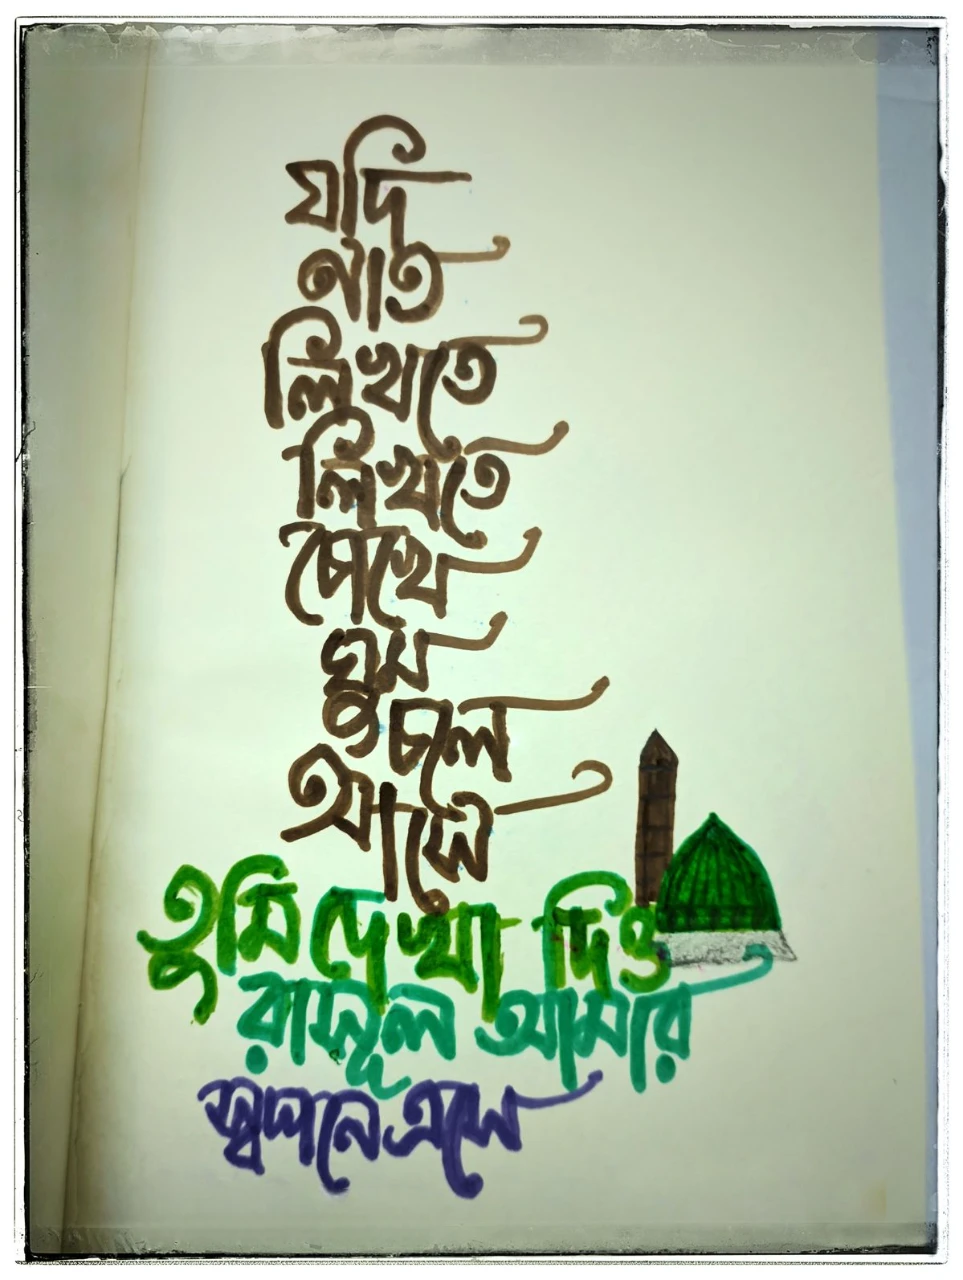 যদি
নাত
লিখতে
লিখতে
চোখে
ঘুম
চলে
আসে
তুমি দেখা দিও
রাসূল আমার
স্বপনে এসে